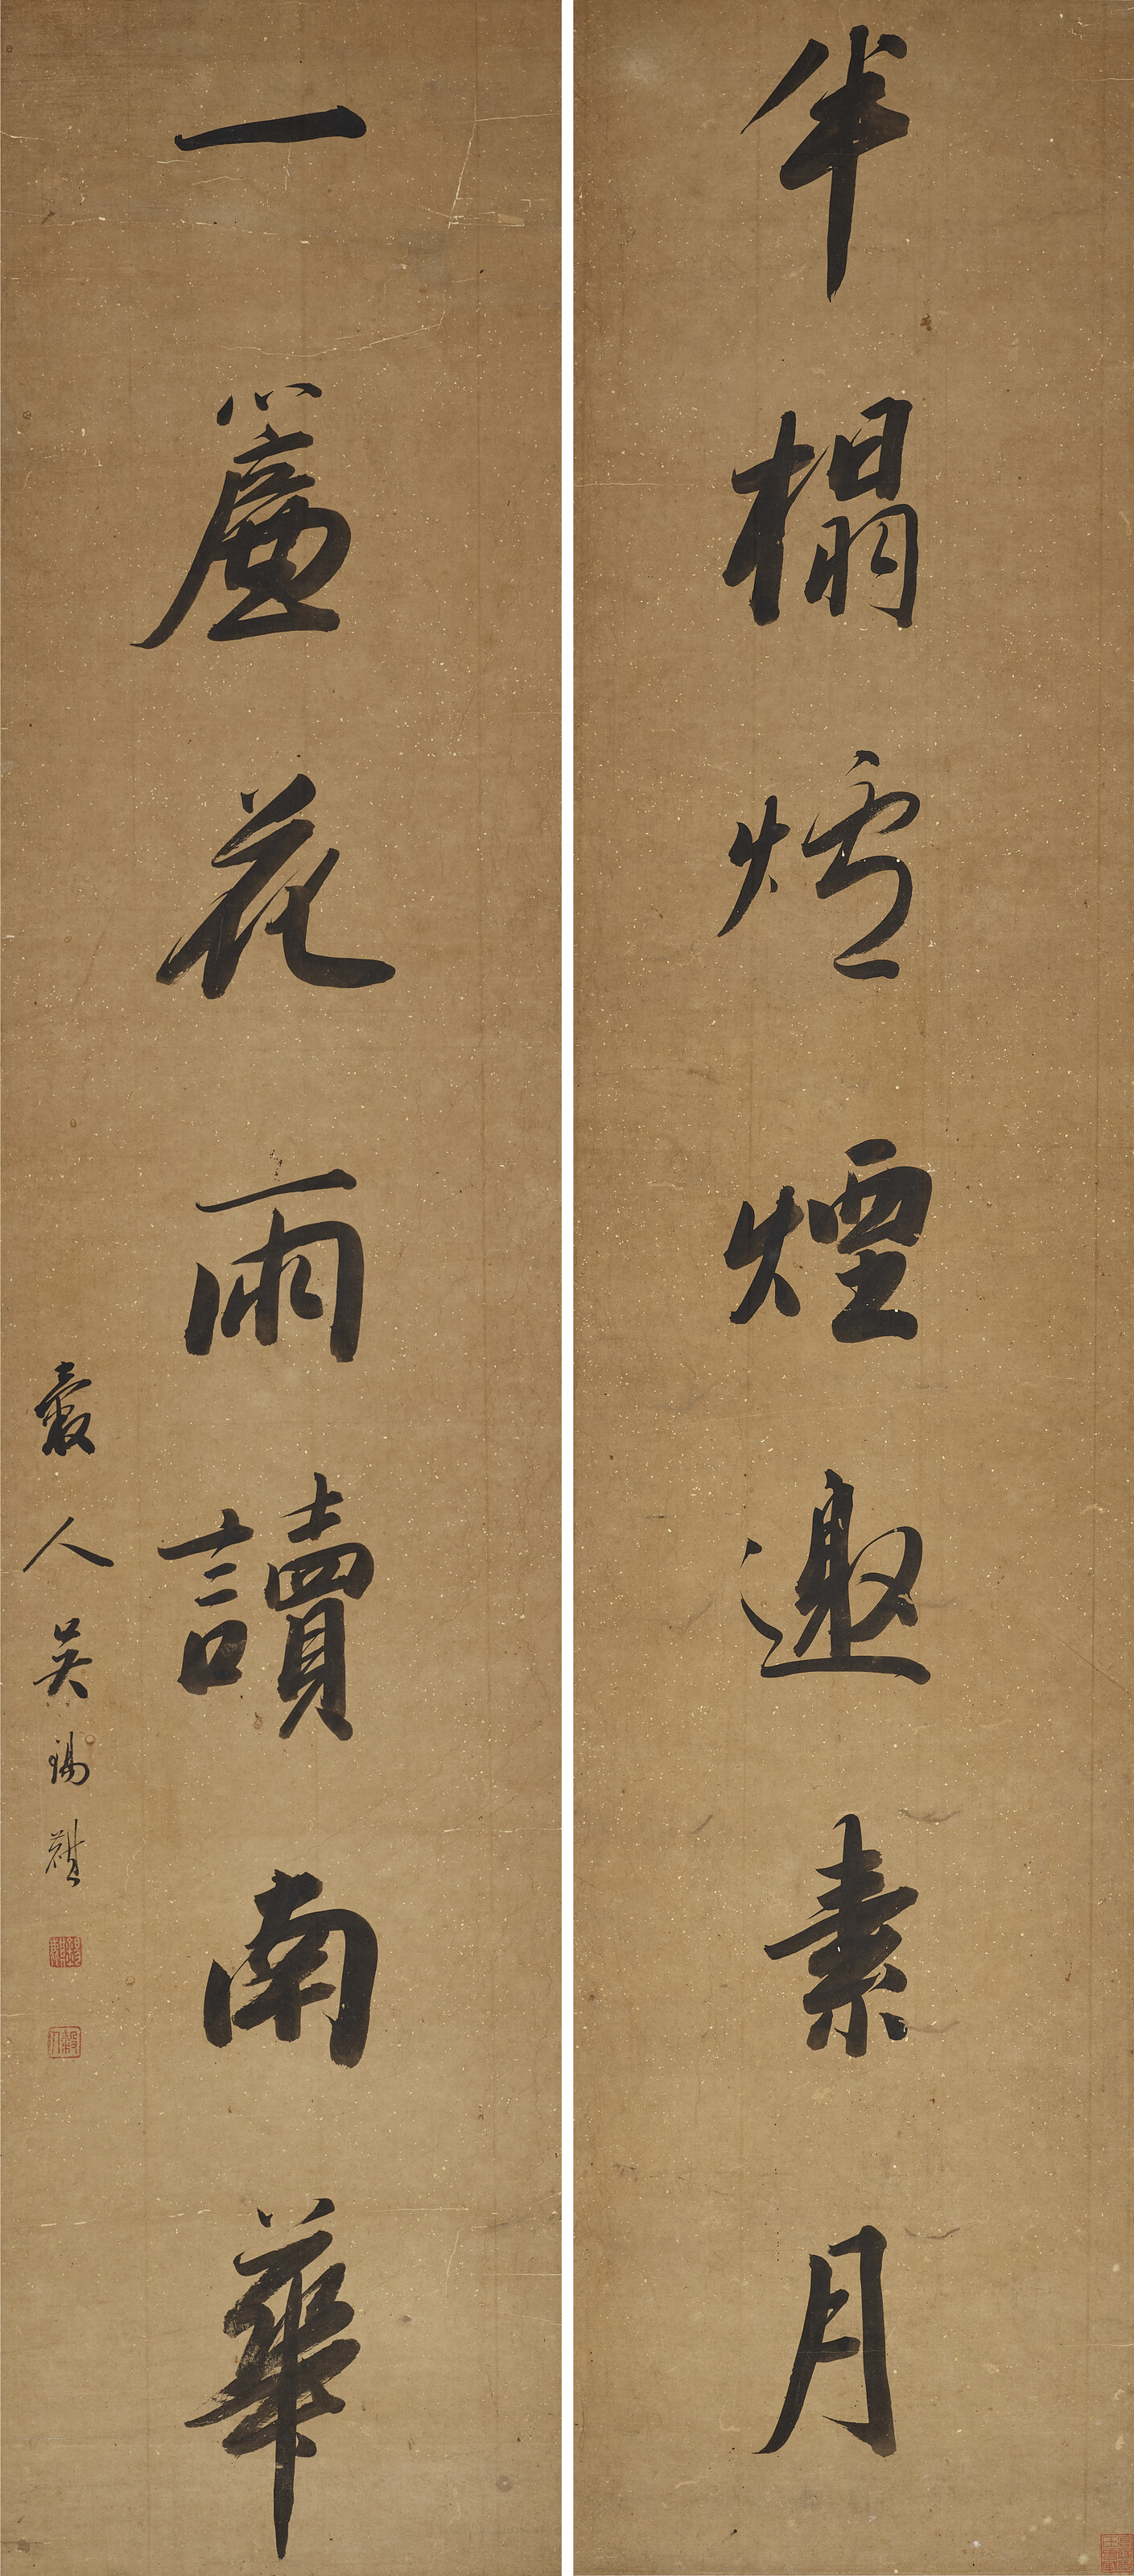 半榻爐煙邀素月
一簾花雨讀南華
穀人吳錫麒